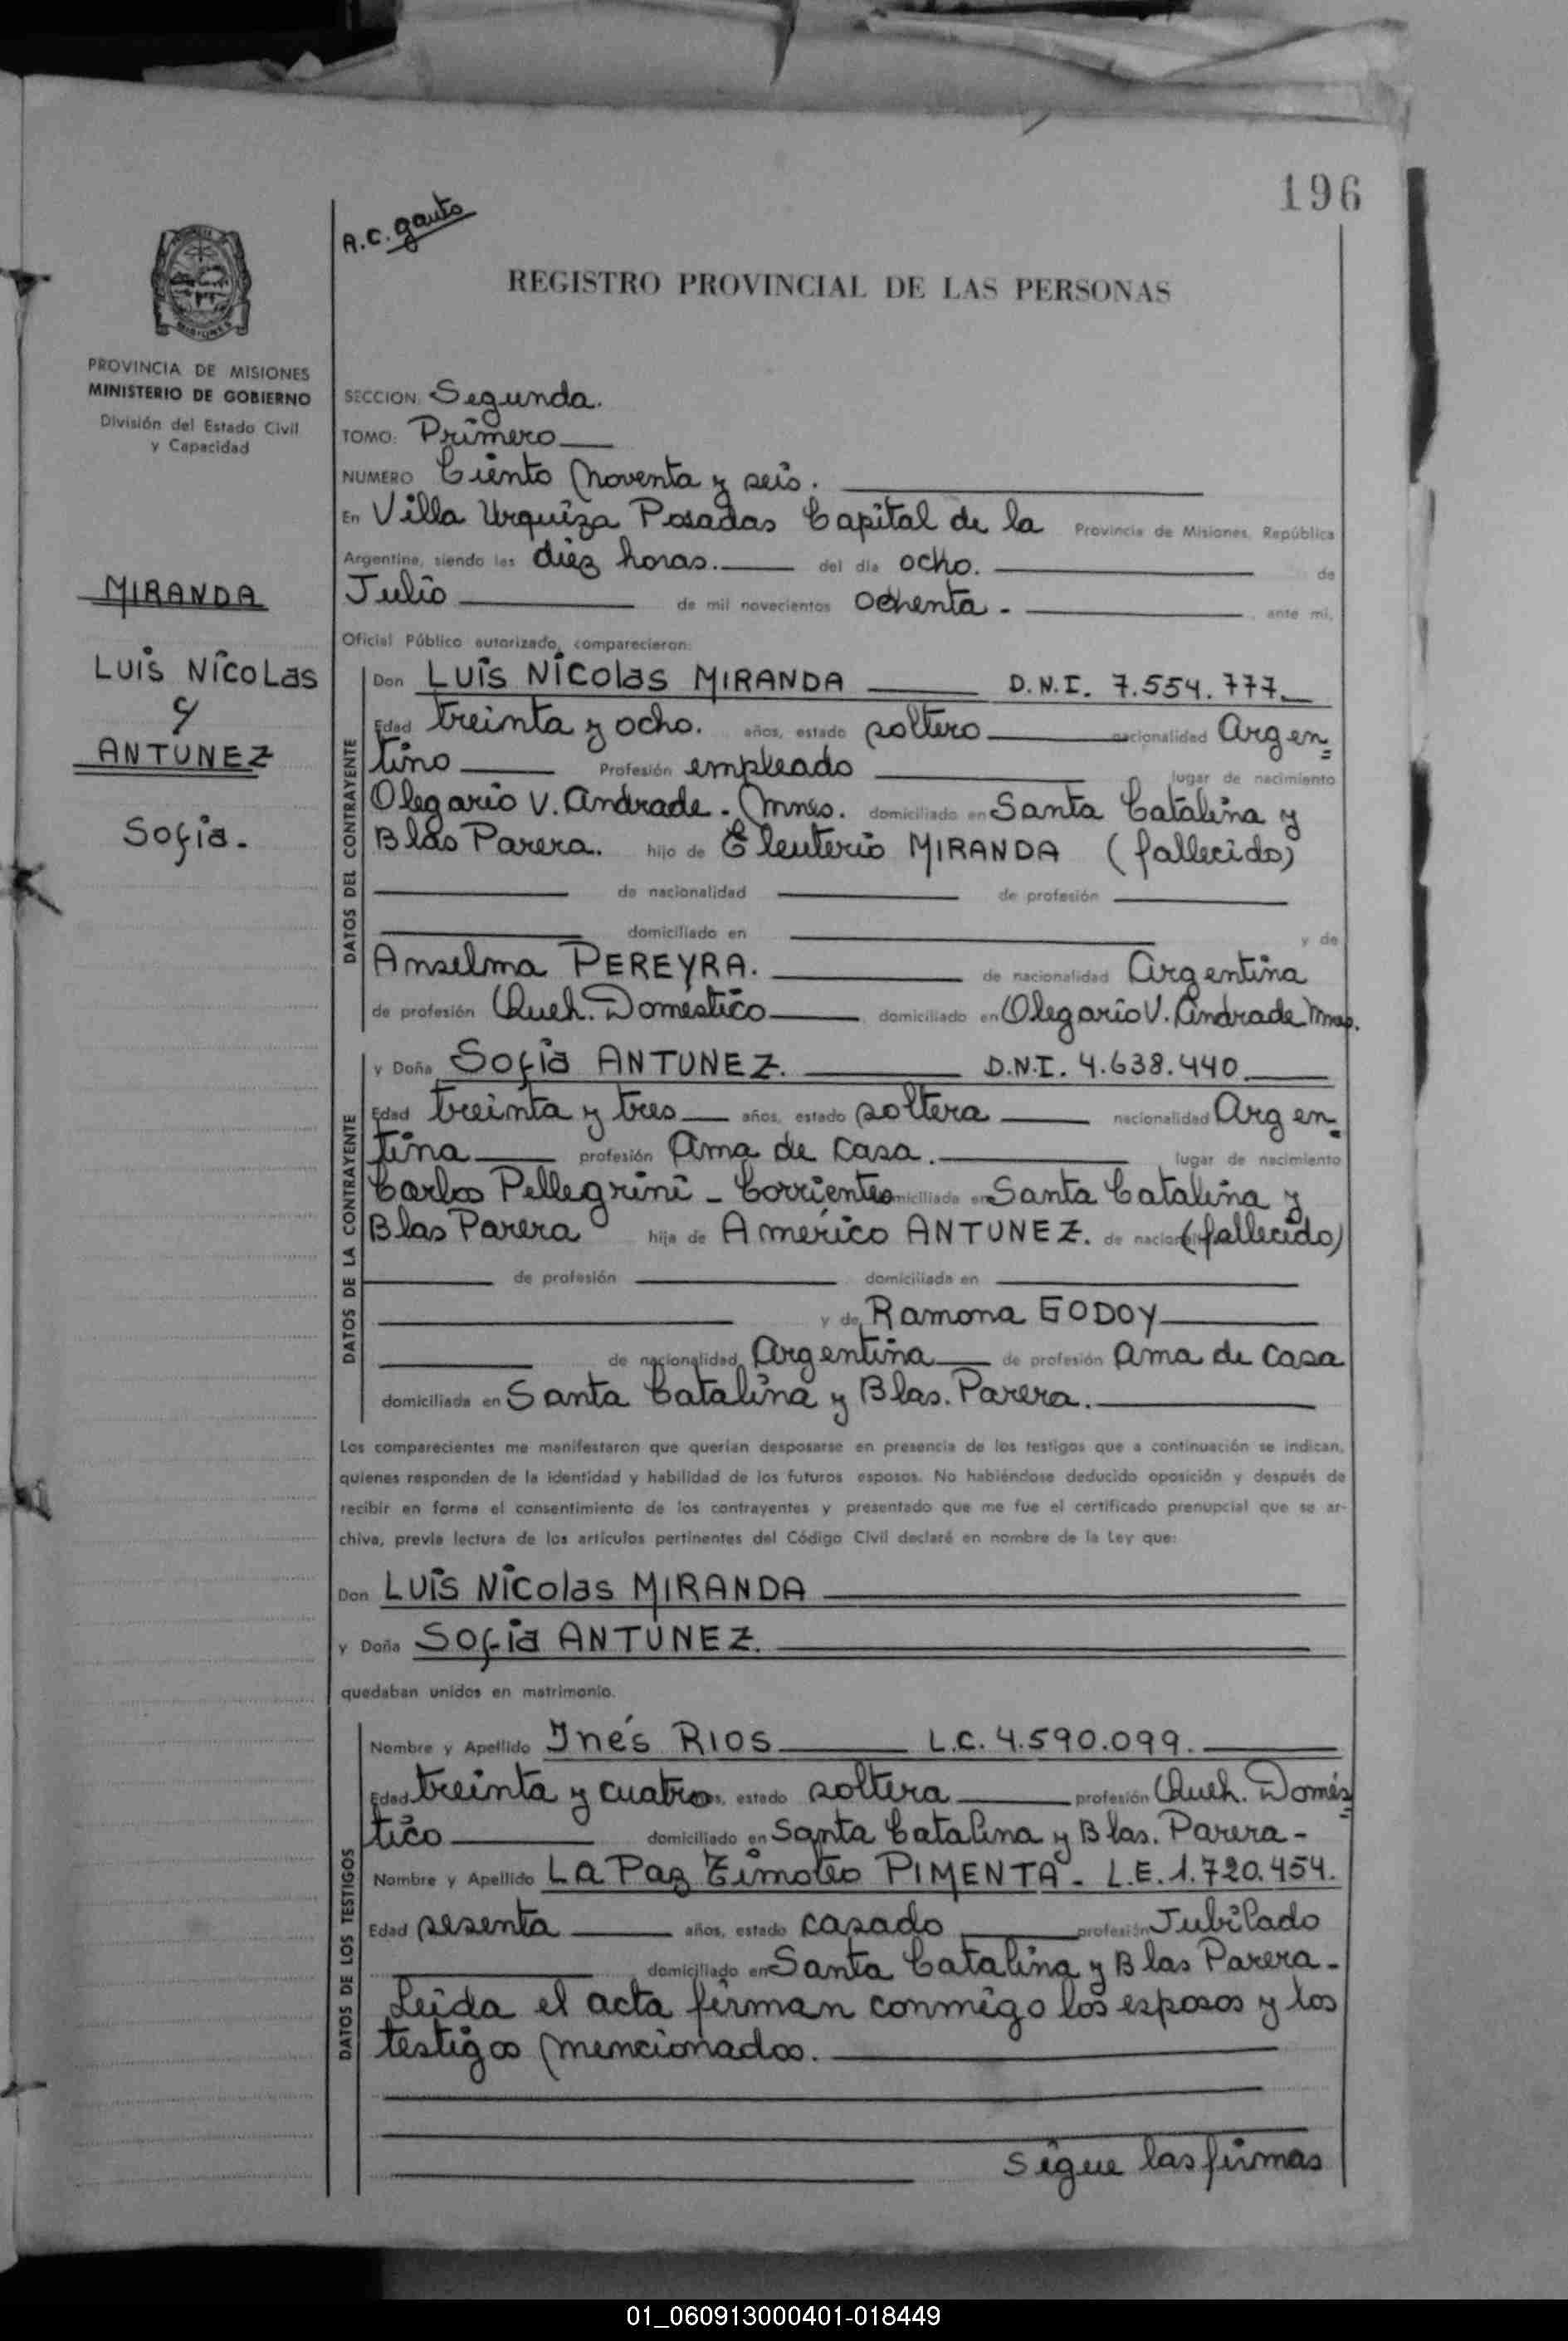 196
A.C. Gauto
REGISTRO PROVINCIAL DE LAS PERSONAS
PROVINCIA DE MISIONES
MINISTERIO DE GOBIERNO
División del Estado Civil
y Capacidad
MIRANDA
Luis Nicolas
y
ANTUNEZ
Sofia.
SECCION: Segunda.
TOMO: Primero
NUMERO Ciento Noventa y seis.
En Villa Urquiza Posadas Capital de la Provincia de Misiones, República
Argentina, siendo las diez horas. del día ocho. de
Julio de mil novecientos Ochenta. ante mi,
Oficial Público autorizado, comparecieron:
DATOS DEL CONTRAYENTE
Don Luis Nicolas MIRANDA D.N.I. 7.554.777
Edad treinta y ocho. años, estado soltero nacionalidad Argen=
tino Profesión empleado lugar de nacimiento
Olegario V. Andrade. Mnes. domiciliado en Santa Catalina y
Blas Parera. hijo de Eleuterio MIRANDA (fallecido)
de nacionalidad de profesión
domiciliado en y de
Anselma PEREYRA. de nacionalidad Argentina
de profesión Queh. Domestico domiciliado en Olegario V. Andrade Mnes.
DATOS DE LA CONTRAYENTE
y Doña Sofia ANTUNEZ. D.N.I. 4.638.440
Edad treinta y tres años, estado soltera nacionalidad Argen=
tina profesión Ama de casa. lugar de nacimiento
Carlos Pellegrini - Corrientes domiciliada en Santa Catalina y
Blas Parera hija de Américo ANTUNEZ. de nacionalidad (fallecido)
de profesión domiciliada en
y de Ramona GODOY
de nacionalidad Argentina de profesión Ama de casa
domiciliada en Santa Catalina y Blas. Parera.
Los comparecientes me manifestaron que querían desposarse en presencia de los testigos que a continuación se indican,
quienes responden de la identidad y habilidad de los futuros esposos. No habiéndose deducido oposición y después de
recibir en forma el consentimiento de los contrayentes y presentado que me fue el certificado prenupcial que se ar-
chiva, previa lectura de los artículos pertinentes del Código Civil declaré en nombre de la Ley que:
Don Luis Nicolas MIRANDA
y Doña Sofia ANTUNEZ.
quedaban unidos en matrimonio.
DATOS DE LOS TESTIGOS
Nombre y Apellido Inés RIOS L.C. 4.590.099.
Edad treinta y cuatro años, estado soltera profesión Queh. Domés=
tico domiciliado en Santa Catalina y Blas. Parera -
Nombre y Apellido La Paz Timoteo PIMENTA - L.E. 1.720.454.
Edad sesenta años, estado casado profesión Jubilado
domiciliado en Santa Catalina y Blas Parera -
Leida el acta firman conmigo los esposos y los
testigos mencionados.
Sigue las firmas
01_060913000401-018449